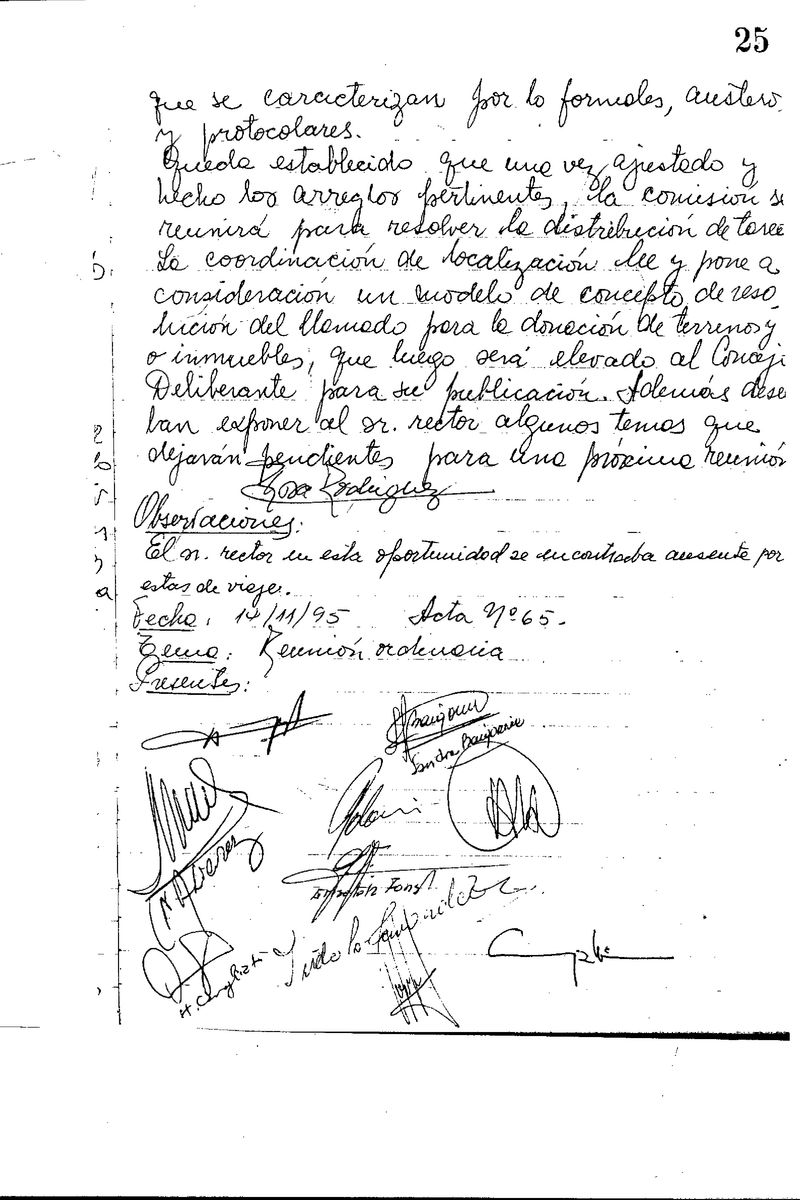 25
que se caracterizan por lo formales, austero
y protocolares.
Queda establecido que una vez ajustado y
hecho los arreglos pertinentes, la comisión se
reunirá para resolver la distribución de tarea
La coordinación de localización lee y pone a
consideración un modelo de concepto de reso
lución del llamado para la donación de terrenos y
o inmuebles, que luego será elevado al Concej
Deliberante para su publicación. Además dese
ban exponer al sr. rector algunos temas que
dejarán pendientes para una próxima reunión
Rosa Rodriguez
Observaciones:
El sr. rector en esta oportunidad se encontraba ausente por
estas de viaje.
Fecha: 14/11/95 Acta Nº 65.
Tema: Reunión ordinaria
Presentes:
Sandra
Alvarez